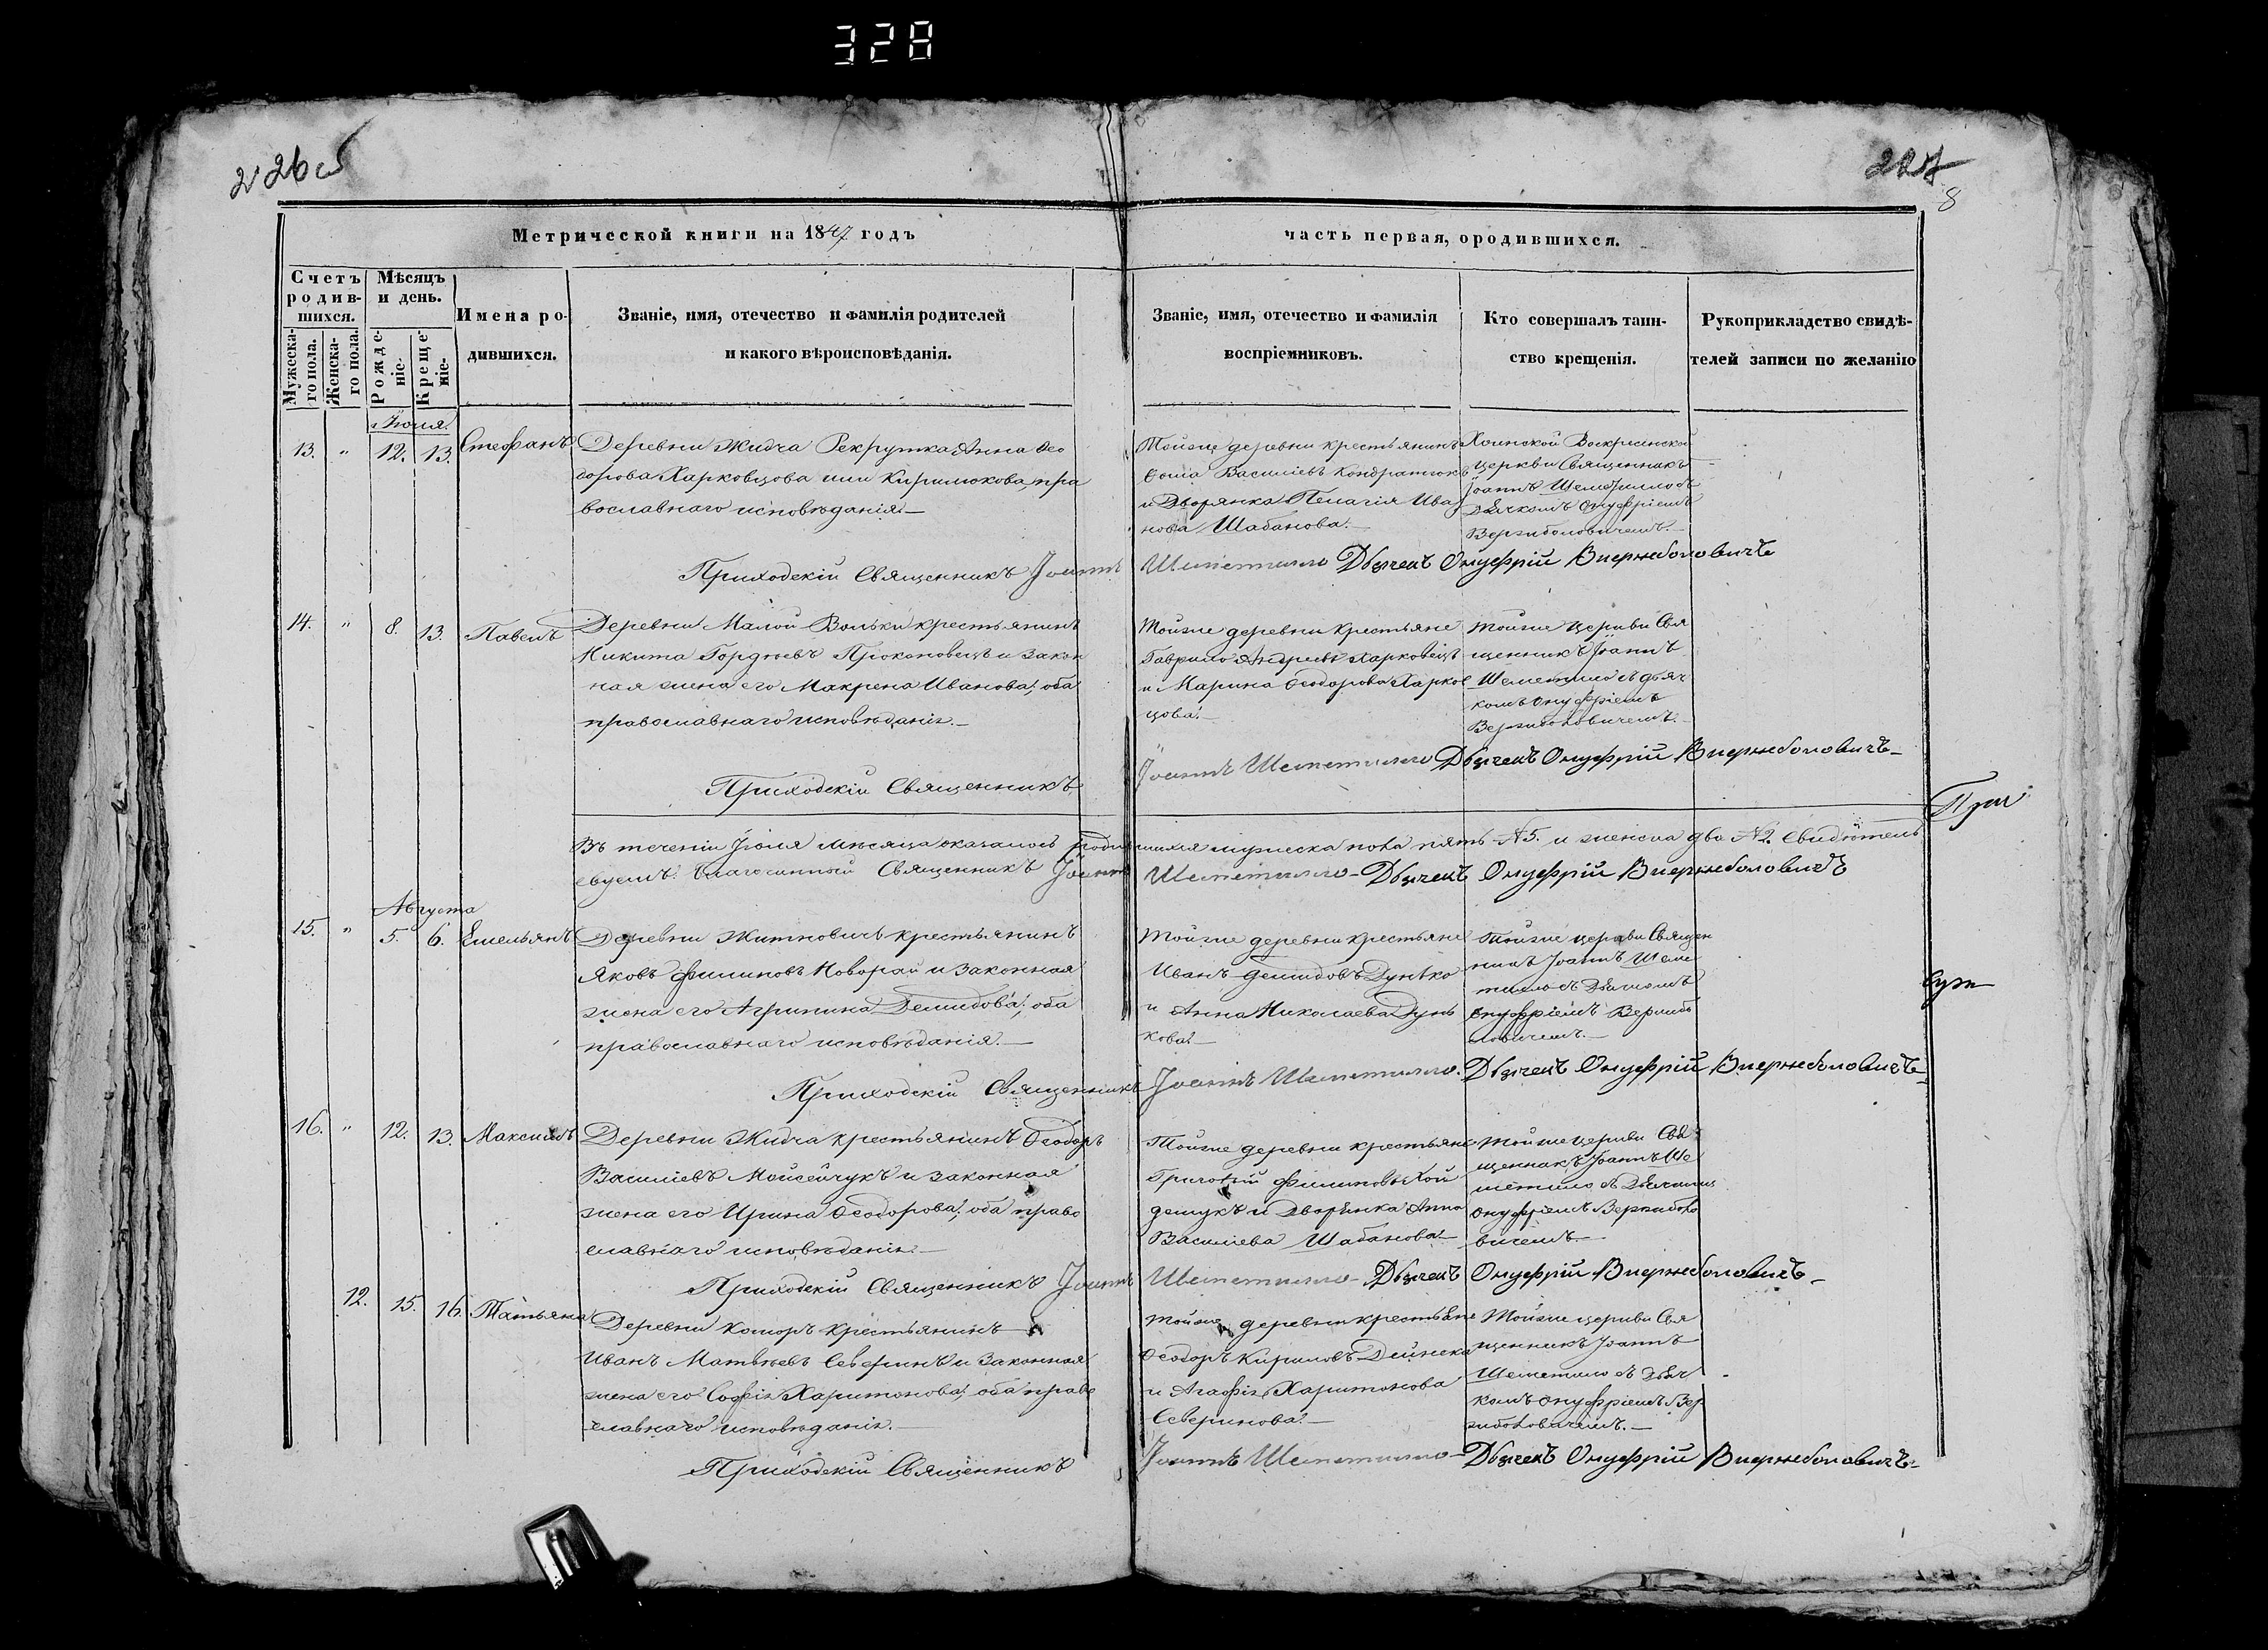 328
226 об
227
8
Метрической книги на 1847 годъ
часть первая, ородившихся.
Счетъ родив-шихся.
Мѣсяцъ и день.
Мужеска-го пола.
Женска-го пола.
Рожде-ніе.
Креще-ніе.
Имена ро-
дившихся.
Званіе, имя, отечество и фамилія родителей
и какого вѣроисповѣданія.
Званіе, имя, отечество и фамилія
воспріемниковъ.
Кто совершалъ таин-
ство крещенія.
Рукоприкладство свидѣ-
телей записи по желанію
Іюля.
13. " 12. 13. Стефанъ
Деревни Жидча Рекрутка Анна Ѳео
дорова Харковцова или Кирилюкова, пра
вославнаго исповѣданія.—
Тойже деревни крестьянинъ
Ѳома Василіевъ Кондратюкъ
и Дворянка Пелагія Ива
нова Шабанова.—
Хоинской Воскресенской
церкви Священникъ
Іоаннъ Шеметилло съ
Дьячкомъ Онуфріемъ
Вержболовичемъ.—
Приходскій Священникъ Іоаннъ Шеметилло Дьячекъ Онуфрій Виержболовичъ
14. " 8. 13. Павелъ
Деревни Малой Вольки крестьянинъ
Никита Гордѣевъ Прокоповецъ и Закон
ная жена его Макрена Иванова, оба
православнаго исповѣданія.—
Тойже деревни крестьяне
Гаврило Андреевъ Харковецъ
и Марина Ѳеодорова Харков
цова.—
Тойже церкви Свя
щенникъ Іоаннъ
Шеметило съ дьяч
комъ Онуфріемъ
Вержболовичемъ.—
Приходскій Священникъ Іоаннъ Шеметилло Дьячекъ Онуфрій Виержболовичъ—
При
Въ теченіи Іюля мѣсяца оказалось родившихся мужеска пола пять №5. и женска два №2. Свидѣтель
свуемъ. Благочинный Священникъ Іоаннъ Шеметилло— Дьячекъ Онуфрій Виержболовичъ
Августа
15. " 5. 6. Емельянъ
Деревни Житновичь крестьянинъ
Яковъ Филиповъ Новорай и Законная
жена его Агрипина Демидова, оба
православнаго исповѣданія.—
Тойже деревни крестьяне
Иванъ Демидовъ Дунько
и Анна Николаева Дунь
кова.—
Тойже церкви Священ
никъ Іоаннъ Шеме
тилло съ Дьячкомъ
Онуфріемъ Вержбо
ловичемъ.—
Приходскій Священникъ Іоаннъ Шеметилло. Дьячекъ Онуфрій Виержболовичъ—
16. " 12. 13. Максимъ
Деревни Жидча крестьянинъ Ѳеодоръ
Василіевъ Мойсейчукъ и законная
жена его Ирина Ѳеодорова, оба право
славнаго исповѣданія.—
Тойже деревни крестьяне
Григорій Филиповъ Хой
демукъ и Дворянка Анна
Василіева Шабанова.—
Тойже церкви Свя
щенникъ Іоаннъ Ше
метило съ Дьячкомъ
Онуфріемъ Вержболо
вичемъ.—
Приходскій Священникъ Іоаннъ Шеметилло— Дьячекъ Онуфрій Виержболовичъ—
12. 15. 16. Татьяна
Деревни Коморъ крестьянинъ
Иванъ Матвѣевъ Северинъ и Законная
жена его Софія Харитонова, оба право
славнаго исповѣданія.—
Тойже деревни крестьяне
Ѳеодоръ Кириловъ Дейнека
и Агафія Харитонова
Северинова.—
Тойже церкви Свя
щенникъ Іоаннъ
Шеметило съ Дьяч
комъ Онуфріемъ Вер
жболовичемъ.—
Приходскій Священникъ Іоаннъ Шеметилло— Дьячекъ Онуфрій Виержболовичъ—